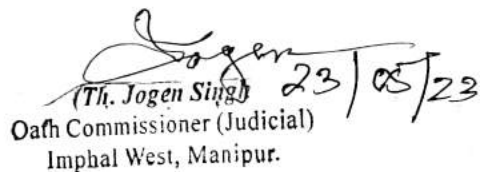 Jogen
(Th. Jogen Singh) 23/05/23
Oath Commissioner (Judicial)
Imphal West, Manipur.